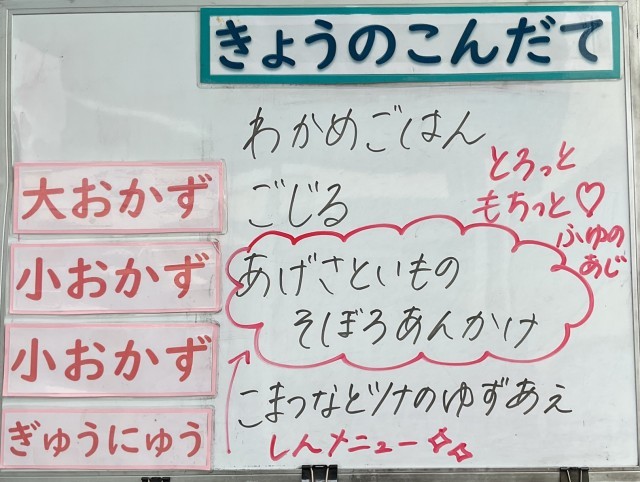 きょうのこんだて
わかめごはん
大おかず
ごじる
とろっと
もちっと♡
ふゆの
あじ
小おかず
あげさといもの
そぼろあんかけ
小おかず
こまつなとツナのゆずあえ
ぎゅうにゅう
しんメニュー